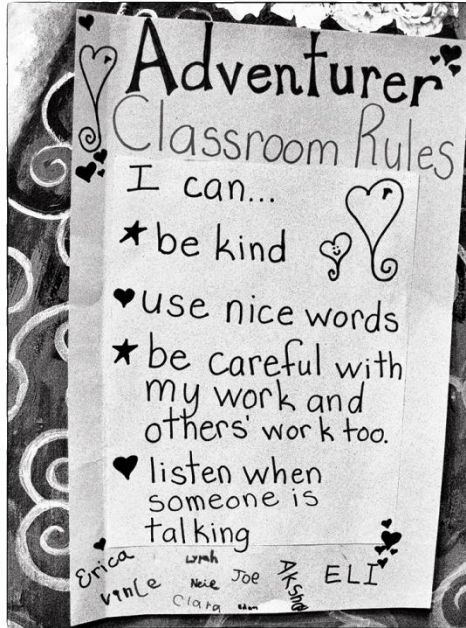 Adventurer
Classroom Rules
I can...
be kind
use nice words
be careful with
my work and
others' work too.
listen when
someone is
talking
Erica
Vince
Joe
ELI
Clara